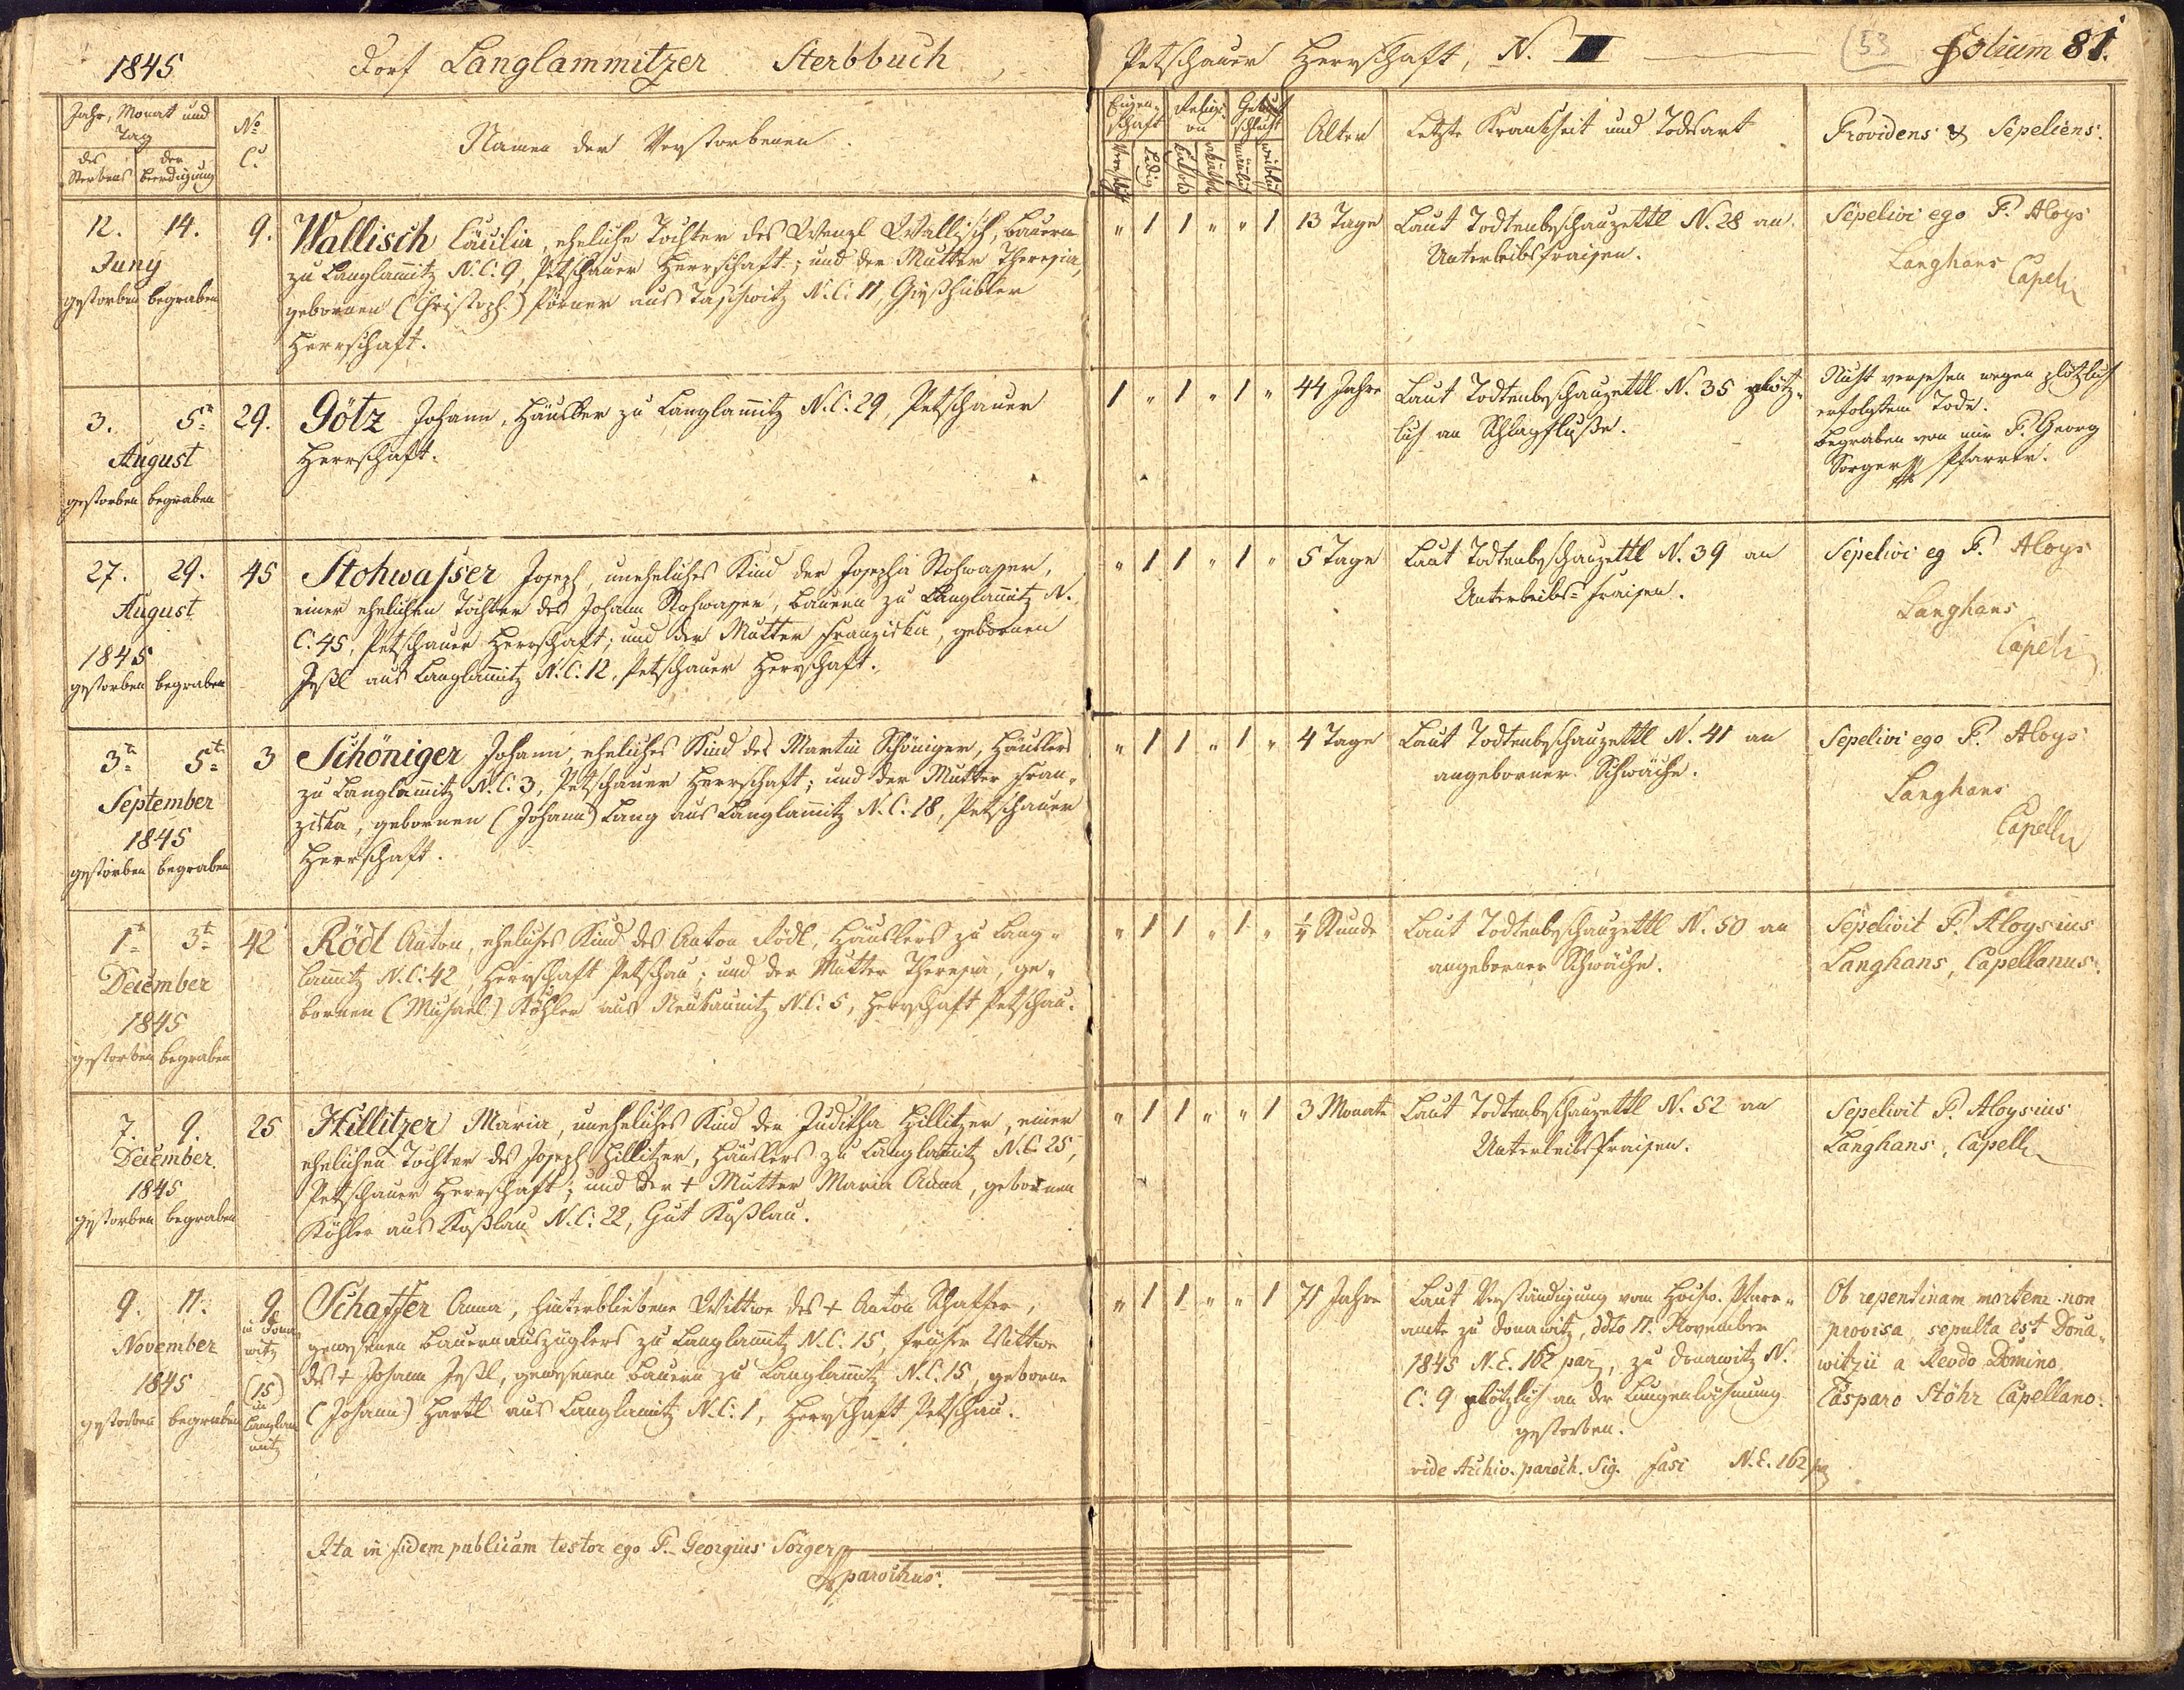 1845 Dorf Langlammitzer Sterbbuch, Petschauer Herrschaft, N. III (53 Folium 81.
Jahr, Monat und
Tag
des Sterbens
der Beerdigung
No C.
Namen der Verstorbenen.
Eigenschaft
Verehligt
Ledig
Religion
Geschlecht
männlich
weiblich
Alter
Letzte Krankheit und Todesart
Providens & Sepeliens.
12. 14.
Juny
gestorben begraben
9.
Wallisch Cäcilia, eheliche Tochter des Wenzl Wallisch, Bauern
zu Langlam̄itz N.C. 9, Petschauer Herrschaft; und der Mutter Theresia,
gebornen (Christoph) Körner aus Taschwitz N.C. 11, Gieshübler
Herrschaft.
" 1 1 " " 1
13 Tage
Laut Todtenbeschauzettl N. 28 an
Unterleibsfraisen.
Sepelivi ego P. Aloys
Langhans
Capell
3. 5t
August
gestorben begraben
29.
Götz Johann, Häusler zu Langlam̄itz N.C. 29, Petschauer
Herrschaft.
1 " 1 " 1 "
44 Jahre
Laut Todtenbeschauzettl N. 35 plötz-
lich an Schlagfluße.
Nicht versehen wegen plötzlich
erfolgtem Tode.
Begraben von mir P. Georg
Sorger Pfarrer.
27. 29.
August
1845
gestorben begraben
45
Stohwasser Joseph, uneheliches Kind der Josepha Stohwasser,
einer ehelichen Tochter des Johann Stohwasser, Bauern zu Langlam̄itz N.
C. 45, Petschauer Herrschaft; und der Mutter Franziska, gebornen
Jeßl aus Langlam̄itz N.C. 12, Petschauer Herrschaft.
" 1 1 " 1 "
5 Tage
Laut Todtenbeschauzettl N. 39 an
Unterleibs-Fraisen.
Sepelivi eg P. Aloys
Langhans
Capell
3t 5t
September
1845
gestorben begraben
3
Schöniger Johann, eheliches Kind des Martin Schöniger, Häuslers
zu Langlam̄itz N.C. 3, Petschauer Herrschaft; und der Mutter Fran-
ziska, gebornen (Johann) Lang aus Langlam̄itz N.C. 18, Petschauer
Herrschaft.
" 1 1 " 1 "
4 Tage
Laut Todtenbeschauzettl N. 41 an
angeborner Schwäche.
Sepelivi ego P. Aloys
Langhans
Capell
1t 3t
December
1845
gestorben begraben
42
Rödl Anton, eheliches Kind des Anton Rödl, Häuslers zu Lang-
lam̄itz N.C. 42, Herrschaft Petschau; und der Mutter Theresia, ge-
bornen (Michael) Köhler aus Neukaunitz N.C. 5, Herrschaft Petschau.
" 1 1 " 1 "
1/4 Stunde
Laut Todtenbeschauzettl N. 50 an
angeborner Schwäche.
Sepelivit P. Aloysius
Langhans, Capellanus.
7. 9.
December.
1845
gestorben begraben
25
Hillitzer Maria, uneheliches Kind der Juditha Hillitzer, einer
ehelichen Tochter des Joseph Hillitzer, Häuslers zu Langlam̄itz N.C. 25,
Petschauer Herrschaft; und der + Mutter Maria Anna, gebornen
Köhler aus Koßlau N.C. 22, Gut Koßlau.
" 1 1 " " 1
3 Monate
Laut Todtenbeschauzettl N. 52 an
Unterleibsfraisen.
Sepelivit P. Aloysius
Langhans, Capell
9. 11.
November
1845
gestorben begraben
9
in Dona-
witz
(15)
in
Langlam
mitz
Schaffer Anna, hinterbliebene Wittwe des + Anton Schaffer,
gewesenen Bauernauszüglers zu Langlam̄itz N.C. 15, früher Wittwe
des + Johann Jeßl, gewesenen Bauern zu Langlam̄itz N.C. 15, geborne
(Johann) Hartl aus Langlamitz N.C. 1, Herrschaft Petschau.
" 1 1 " " 1
71 Jahre
Laut Verständigung vom Hochw. Pfarr-
amte zu Donawitz, ddto 17. November
1845 N.E. 162 par, zu Donawitz N.
C. 9 plötzlich an der Lungenlähmung
gestorben.
vide Archiv. paroch. Sig. Fasc N.E. 162 par
Ob repentinam mortem non
provisa, sepulta est Dona-
witzii a Revdo Domino
Casparo Stöhr Capellano.
Ita in fidem publicam testor ego P. Georgius Sorger
parochus.